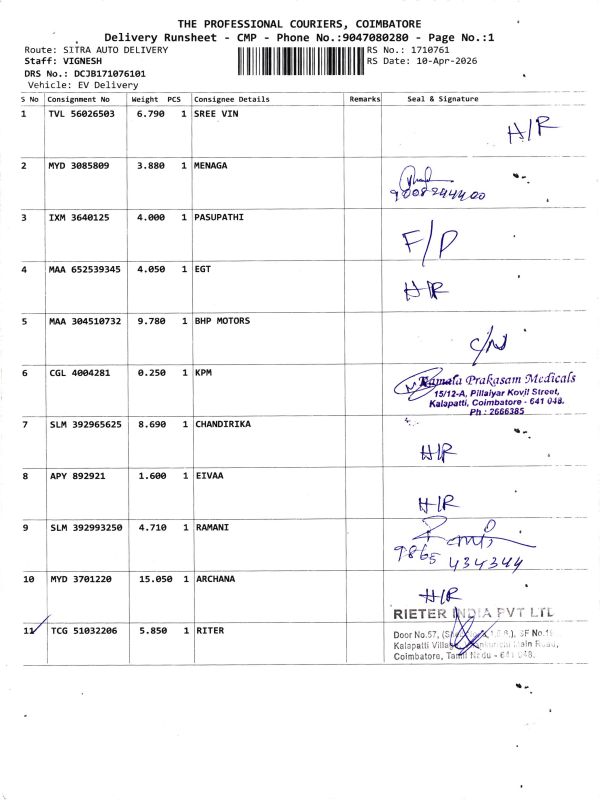 THE PROFESSIONAL COURIERS, COIMBATORE
Delivery Runsheet - CMP - Phone No.:9047080280 - Page No.:1
Route: SITRA AUTO DELIVERY RS No.: 1710761
Staff: VIGNESH RS Date: 10-Apr-2026
DRS No.: DCJB171076101
Vehicle: EV Delivery
S No Consignment No Weight PCS Consignee Details Remarks Seal & Signature
1 TVL 56026503 6.790 1 SREE VIN
H/R
2 MYD 3085809 3.880 1 MENAGA
3 IXM 3640125 4.000 1 PASUPATHI
F/D
4 MAA 652539345 4.050 1 EGT
H/R
5 MAA 304510732 9.780 1 BHP MOTORS
6 CGL 4004281 0.250 1 KPM
Kamala Prakasam Medicals
15/12-A, Pillaiyar Kovil Street,
Kalapatti, Coimbatore - 641 048.
Ph : 2666385
7 SLM 392965625 8.690 1 CHANDIRIKA
H/R
8 APY 892921 1.600 1 EIVAA
H/R
9 SLM 392993250 4.710 1 RAMANI
9865 434344
10 MYD 3701220 15.050 1 ARCHANA
H/R
RIETER INDIA PVT LTD
11 TCG 51032206 5.850 1 RITER
Door No.57, SF No.
Kalapatti Main Road,
Coimbatore, Tamil Nadu - 641 048.